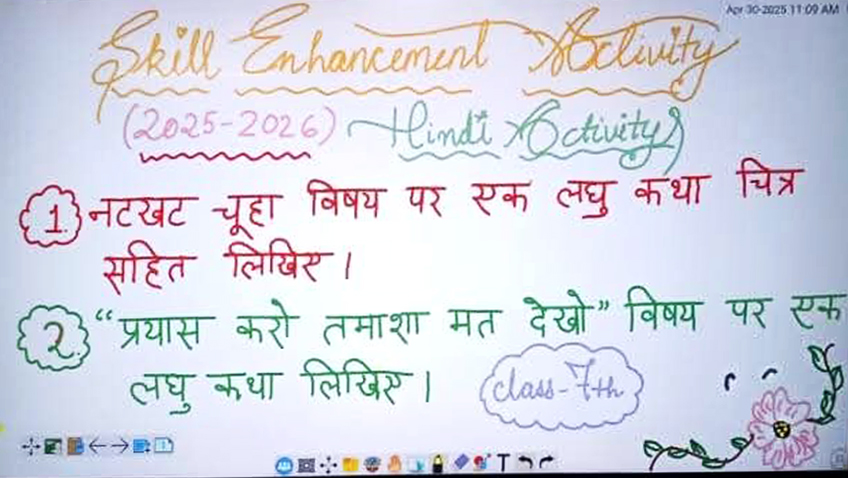 Apr 30-2025 11:09 AM
Skill Enhancement Activity
(2025-2026) Hindi Activity
1. नटखट चूहा विषय पर एक लघु कथा चित्र
सहित लिखिए।
2. “प्रयास करो तमाशा मत देखो” विषय पर एक
लघु कथा लिखिए।
class-7th